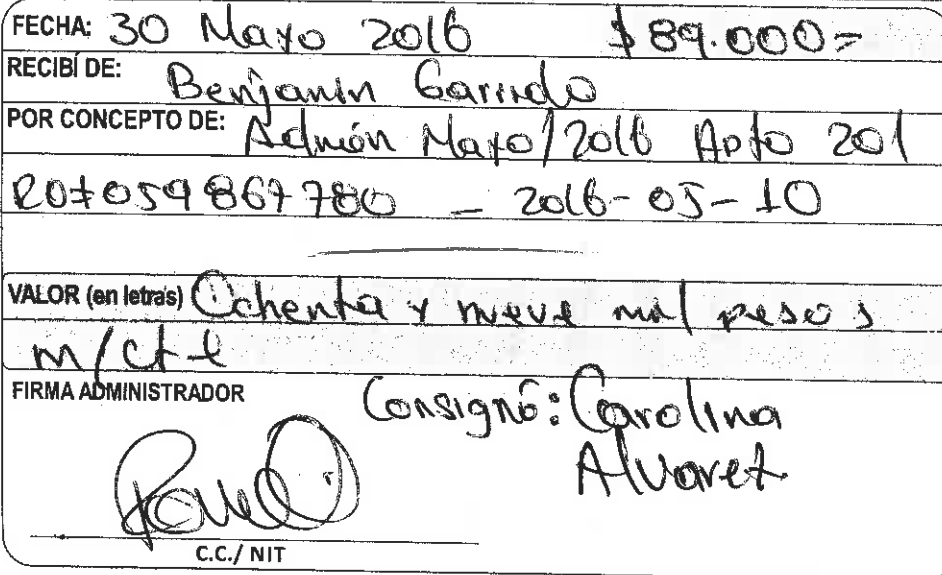 FECHA: 30 Mayo 2016 $89.000=
RECIBÍ DE: Benjamin Garrido
POR CONCEPTO DE: Admón Mayo/2016 Apto 201
2016-05-10
VALOR (en letras) Ochenta y nueve mil pesos
m/cte
FIRMA ADMINISTRADOR
Consignó: Carolina
Alvarez
C.C./ NIT